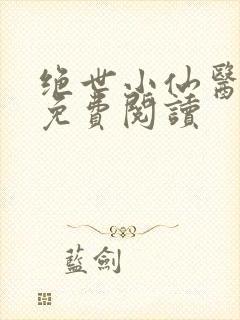 绝世小仙醫
免費閱讀
藍劍